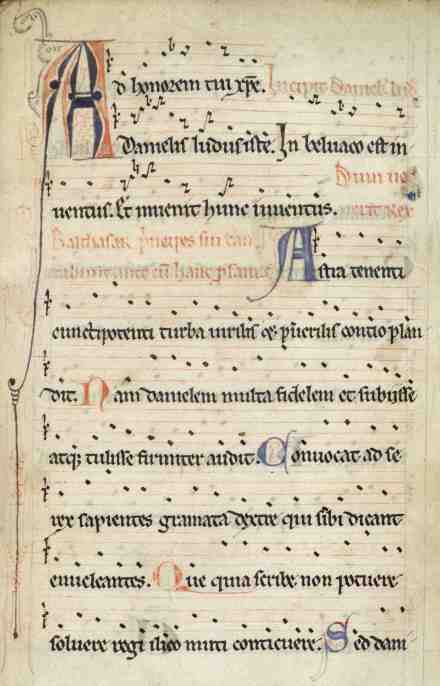 Ad honorem tui xpe. Incipit Danielis lud
Danielis ludus iste. In beluaco est in
Dum ue
uentus. Et inuenit hunc iuuentus.
Balthasar
Astra tenenti
cunctipotenti turba uirilis et puerilis contio plau
dit. Nam danielem multa fidelem et subiisse
atq; tulisse firmiter audit. Conuocat ad se
rex sapientes gramata dextre qui sibi dicant
enucleantes. Que quia scribe non potuere
soluere regi ilico muti conticuere. Sed dani